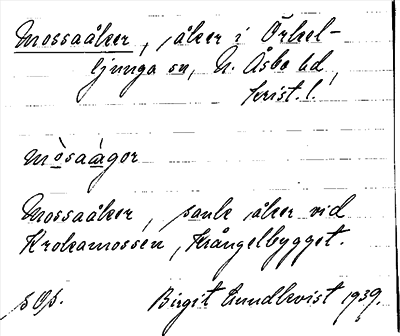 Mossaåker, åker i Örkel-
ljunga sn, N. Åsbo hd,
Krist. l.
mòsaàgor
Mossaåker, sank åker vid
Krokamossen, Krångelbygget.
sOs. Birgit Lundkvist 1939.